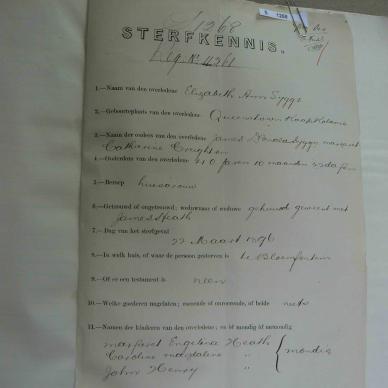 S 1268
S. 1268
STERFKENNIS.
1.—Naam van den overledene Elizabeth Ann Syggs
2.—Geboorteplaats van den overledene Queenstown Kaap Kolonie
3.—Namen der ouders van den overledene James Syggs Margaret
Catharine Creighton
4.—Ouderdom van den overledene 40 Jaren 10 maanden dagen
5.—Beroep huisvrouw
6.—Getrouwd of ongetrouwd; weduwnaar of weduwe gehuwd geweest met
James Heath
7.—Dag van het sterfgeval
22 Maart 1896
8.—In welk huis, of waar de persoon gestorven is te Bloemfontein
9.—Of er een testament is neen
10.—Welke goederen nagelaten; roerende of onroerende, of beide niets
11.—Namen der kinderen van den overledene; en of mondig of onmondig
Margaret Engelena Heath
Caroline Magdalena "
John Henry "
mondig